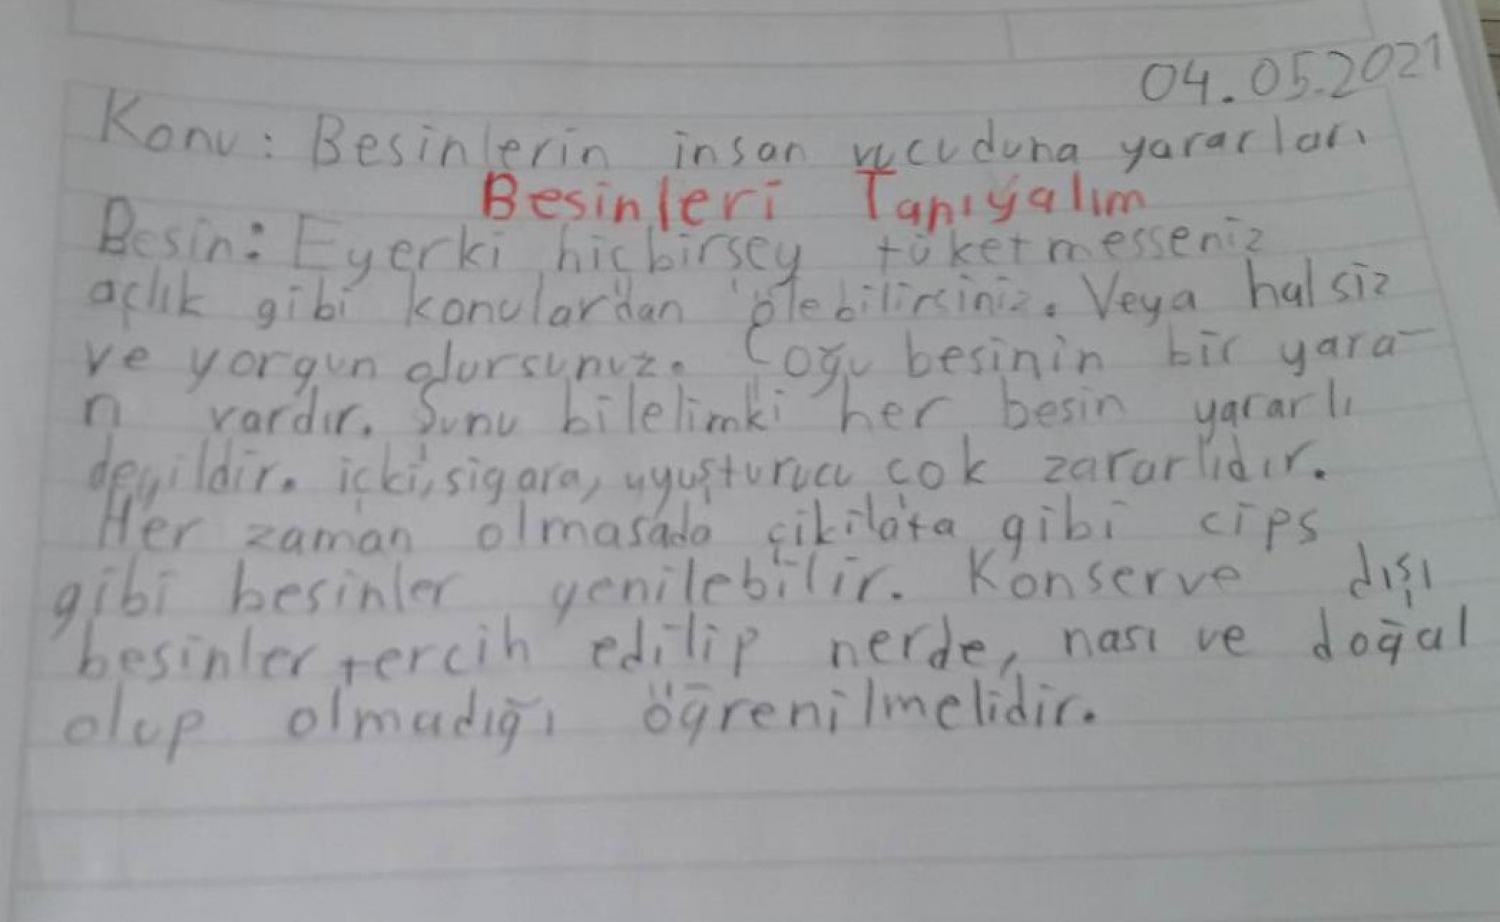 04.05.2021
Konu: Besinlerin insan vucuduna yararları
Besinleri Tanıyalım
Besin: Eyerki hiçbirsey tüketmesseniz
açlık gibi konulardan ölebilirsiniz. Veya halsiz
ve yorgun olursunuz. Çoğu besinin bir yara-
rı vardır. Sunu bilelimki her besin yararlı
deyildir. içki, sigara, uyuşturucu çok zararlıdır.
Her zaman olmasada çikilata gibi cips
gibi besinler yenilebilir. Konserve dışı
besinler tercih edilip nerde, nası ve doğal
olup olmadığı öğrenilmelidir.